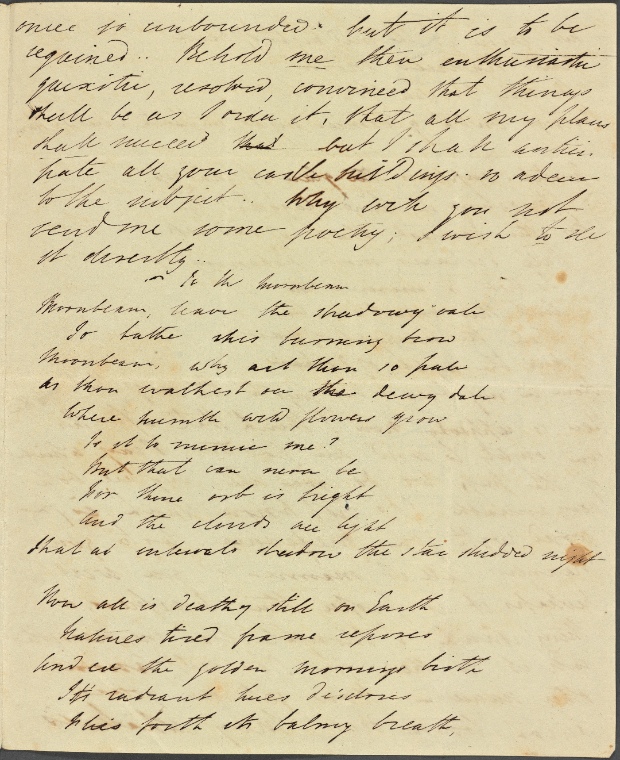 once so unbounded. but it is to be
regained.. Behold me then enthusiastic
quixotic, resolved, convinced that things
shall be as I order it, that all my plans
shall succeed but I shall antici-
pate all your castle buildings. so adieu
to the subject.. Why will you not
send me some poetry; I wish to see
it directly..
To the moonbeam
Moonbeam, leave the shadowy vale
To bathe this burning brow
Moonbeam, why art thou so pale
as thou walkest oer the dewy dale
Where humble wild flowers grow
Is it to mimic me?
But that can never be
For thine orb is bright
And the clouds are light
that at intervals shadow the star studded night

Now all is deathy still on Earth
Natures tired frame reposes
And ere the golden mornings birth
Its radiant hues discloses
Flies forth its balmy breath,